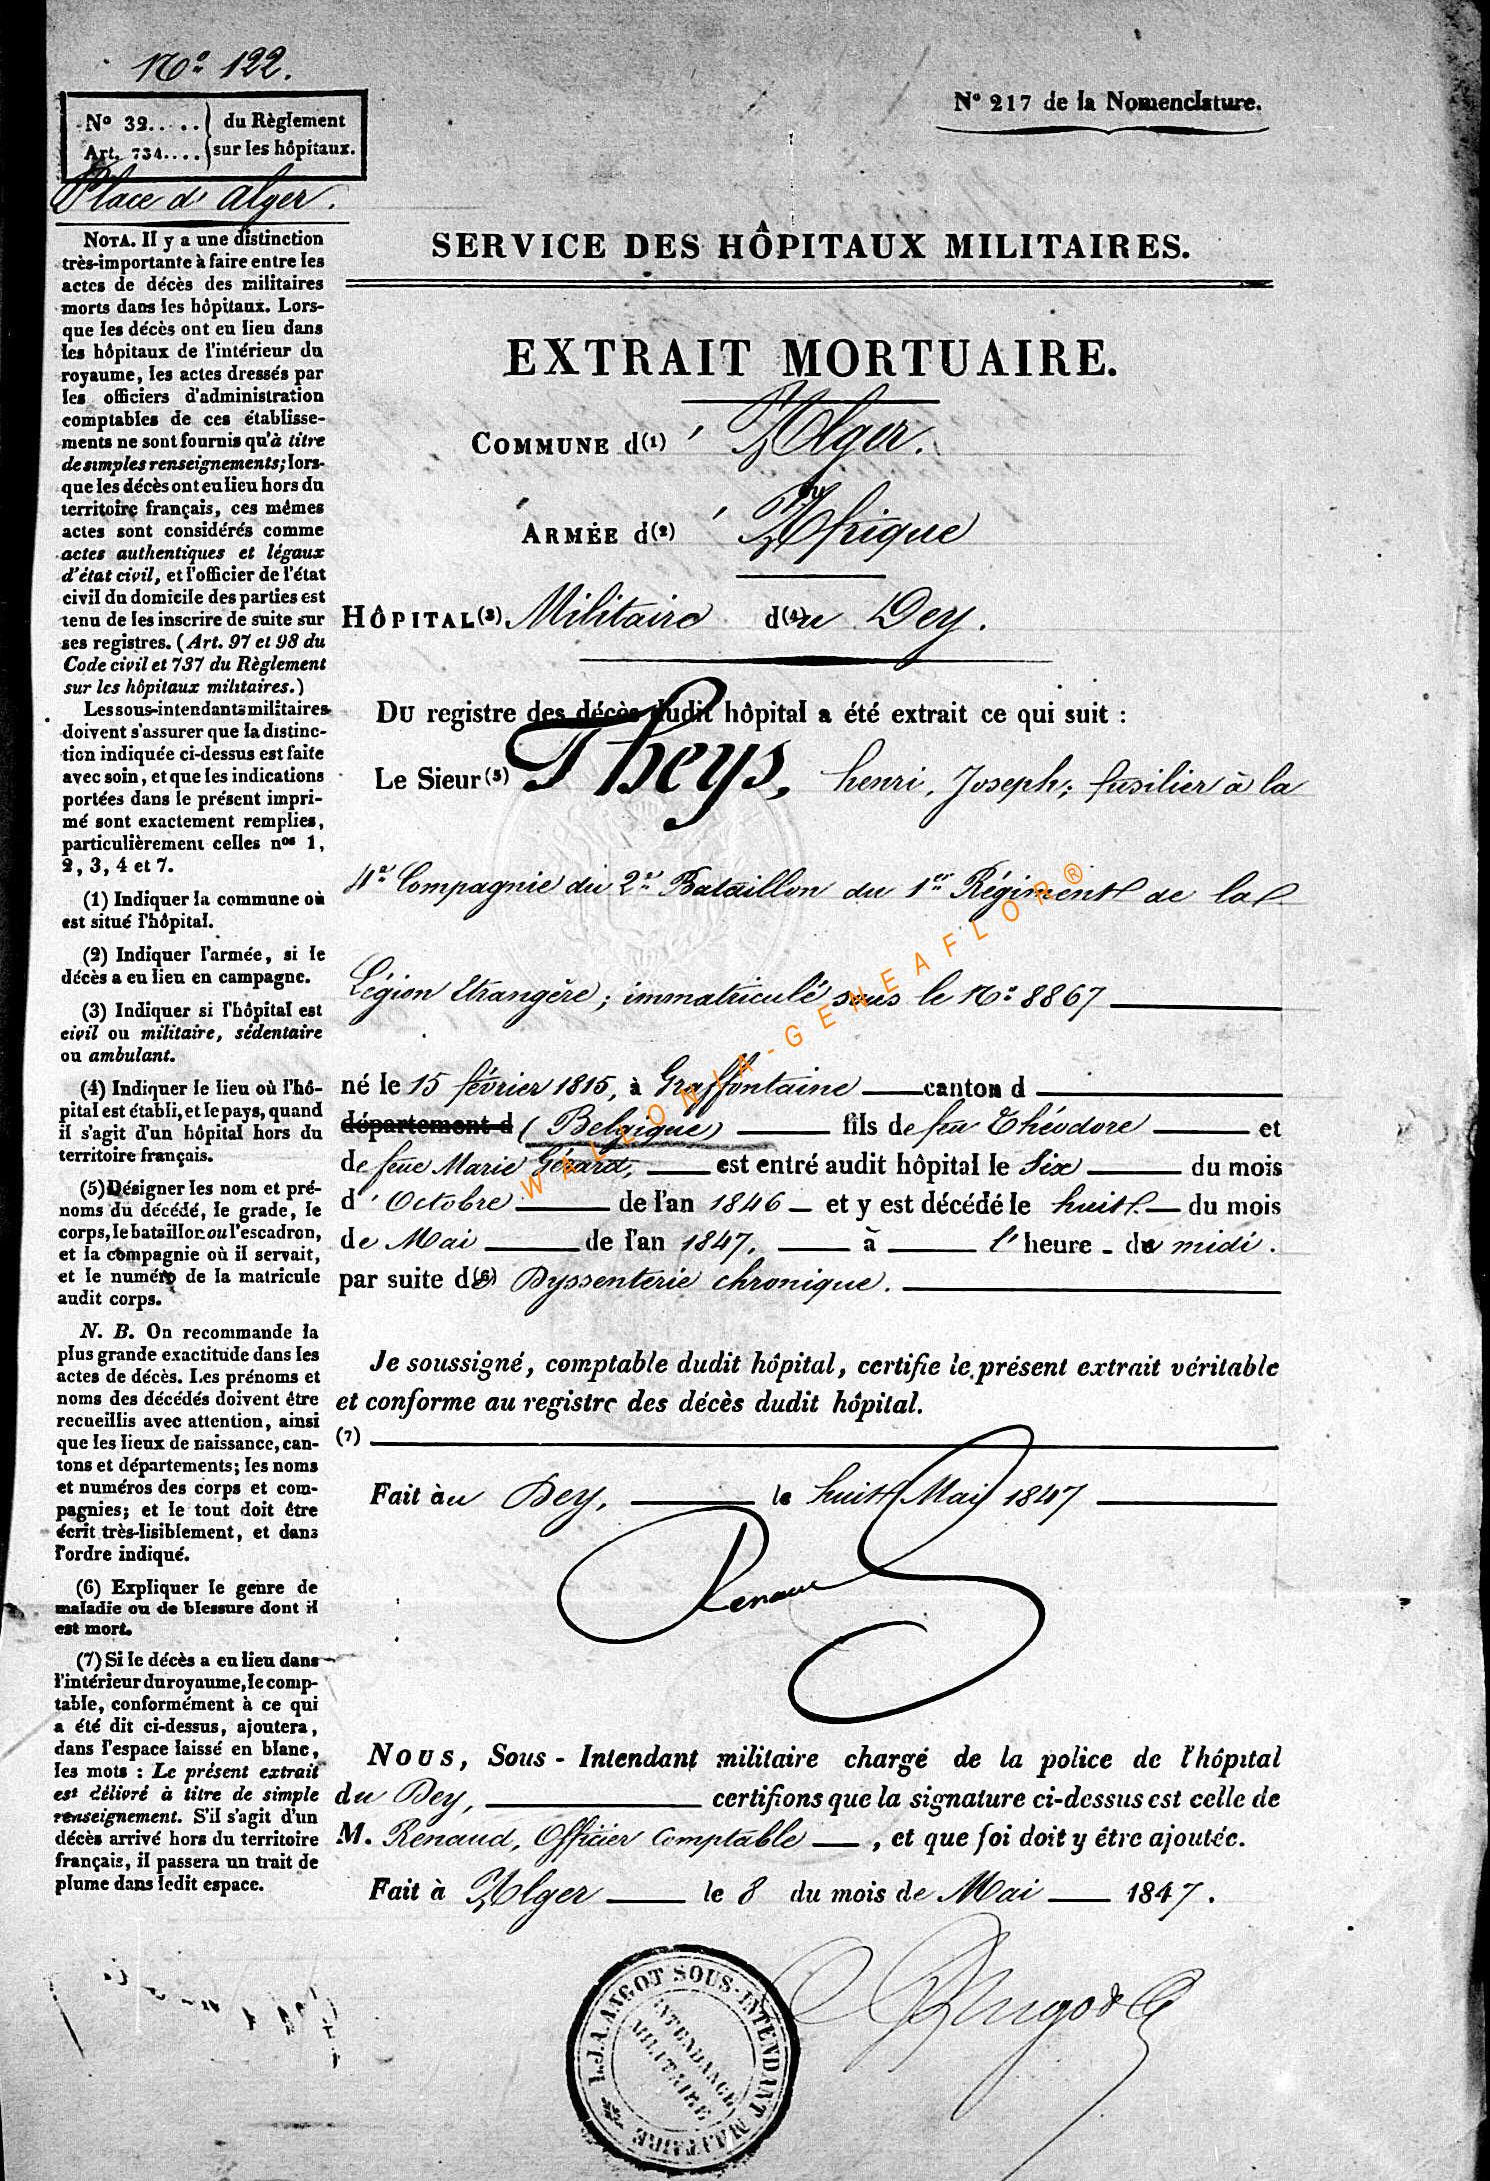 Nº 122.
Nº 39..... du Règlement
Art. 734.... sur les hôpitaux.
Place d'Alger.
Nº 217 de la Nomenclature.
SERVICE DES HÔPITAUX MILITAIRES.
EXTRAIT MORTUAIRE.
COMMUNE d(1) ' Alger.
ARMÉE d(2) ' Afrique
HÔPITAL(3) Militaire d(4)u Dey.
DU registre des décès dudit hôpital a été extrait ce qui suit :
Le Sieur(5) Theys, henri, Joseph; fusilier à la
4e Compagnie du 2e Bataillon du 1er Régiment de la
Légion Etrangère; immatriculé sous le Nº 8867
né le 15 février 1815, à Graffontaine canton d
département d (Belgique) fils de feu Théodore et
de feue Marie Gérard, est entré audit hôpital le Six du mois
d'Octobre de l'an 1846 et y est décédé le huit du mois
de Mai de l'an 1847, à l'heure de midi.
par suite de(6) Dyssenterie chronique.
Je soussigné, comptable dudit hôpital, certifie le présent extrait véritable
et conforme au registre des décès dudit hôpital.
(7)
Fait au Dey, le huit Mai 1847
Renaud
NOUS, Sous-Intendant militaire chargé de la police de l'hôpital
du Dey, certifions que la signature ci-dessus est celle de
M. Renaud, Officier Comptable, et que foi doit y être ajoutée.
Fait à Alger le 8 du mois de Mai 1847.
L.J.A. ANGOT SOUS-INTENDANT MILITAIRE
INTENDANCE
MILITAIRE
NOTA. Il y a une distinction
très-importante à faire entre les
actes de décès des militaires
morts dans les hôpitaux. Lors-
que les décès ont eu lieu dans
les hôpitaux de l'intérieur du
royaume, les actes dressés par
les officiers d'administration
comptables de ces établisse-
ments ne sont fournis qu'à titre
de simples renseignements; lors-
que les décès ont eu lieu hors du
territoire français, ces mêmes
actes sont considérés comme
actes authentiques et légaux
d'état civil, et l'officier de l'état
civil du domicile des parties est
tenu de les inscrire de suite sur
ses registres. (Art. 97 et 98 du
Code civil et 737 du Règlement
sur les hôpitaux militaires.)
Les sous-intendants militaires
doivent s'assurer que la distinc-
tion indiquée ci-dessus est faite
avec soin, et que les indications
portées dans le présent impri-
mé sont exactement remplies,
particulièrement celles nos 1,
2, 3, 4 et 7.
(1) Indiquer la commune où
est situé l'hôpital.
(2) Indiquer l'armée, si le
décès a eu lieu en campagne.
(3) Indiquer si l'hôpital est
civil ou militaire, sédentaire
ou ambulant.
(4) Indiquer le lieu où l'hô-
pital est établi, et le pays, quand
il s'agit d'un hôpital hors du
territoire français.
(5) Désigner les nom et pré-
noms du décédé, le grade, le
corps, le bataillon ou l'escadron,
et la compagnie où il servait,
et le numéro de la matricule
audit corps.
N. B. On recommande la
plus grande exactitude dans les
actes de décès. Les prénoms et
noms des décédés doivent être
recueillis avec attention, ainsi
que les lieux de naissance, can-
tons et départements; les noms
et numéros des corps et com-
pagnies; et le tout doit être
écrit très-lisiblement, et dans
l'ordre indiqué.
(6) Expliquer le genre de
maladie ou de blessure dont il
est mort.
(7) Si le décès a eu lieu dans
l'intérieur du royaume, le comp-
table, conformément à ce qui
a été dit ci-dessus, ajoutera,
dans l'espace laissé en blanc,
les mots : Le présent extrait
est délivré à titre de simple
renseignement. S'il s'agit d'un
décès arrivé hors du territoire
français, il passera un trait de
plume dans ledit espace.
WALLONIA-GENEAFLOR®